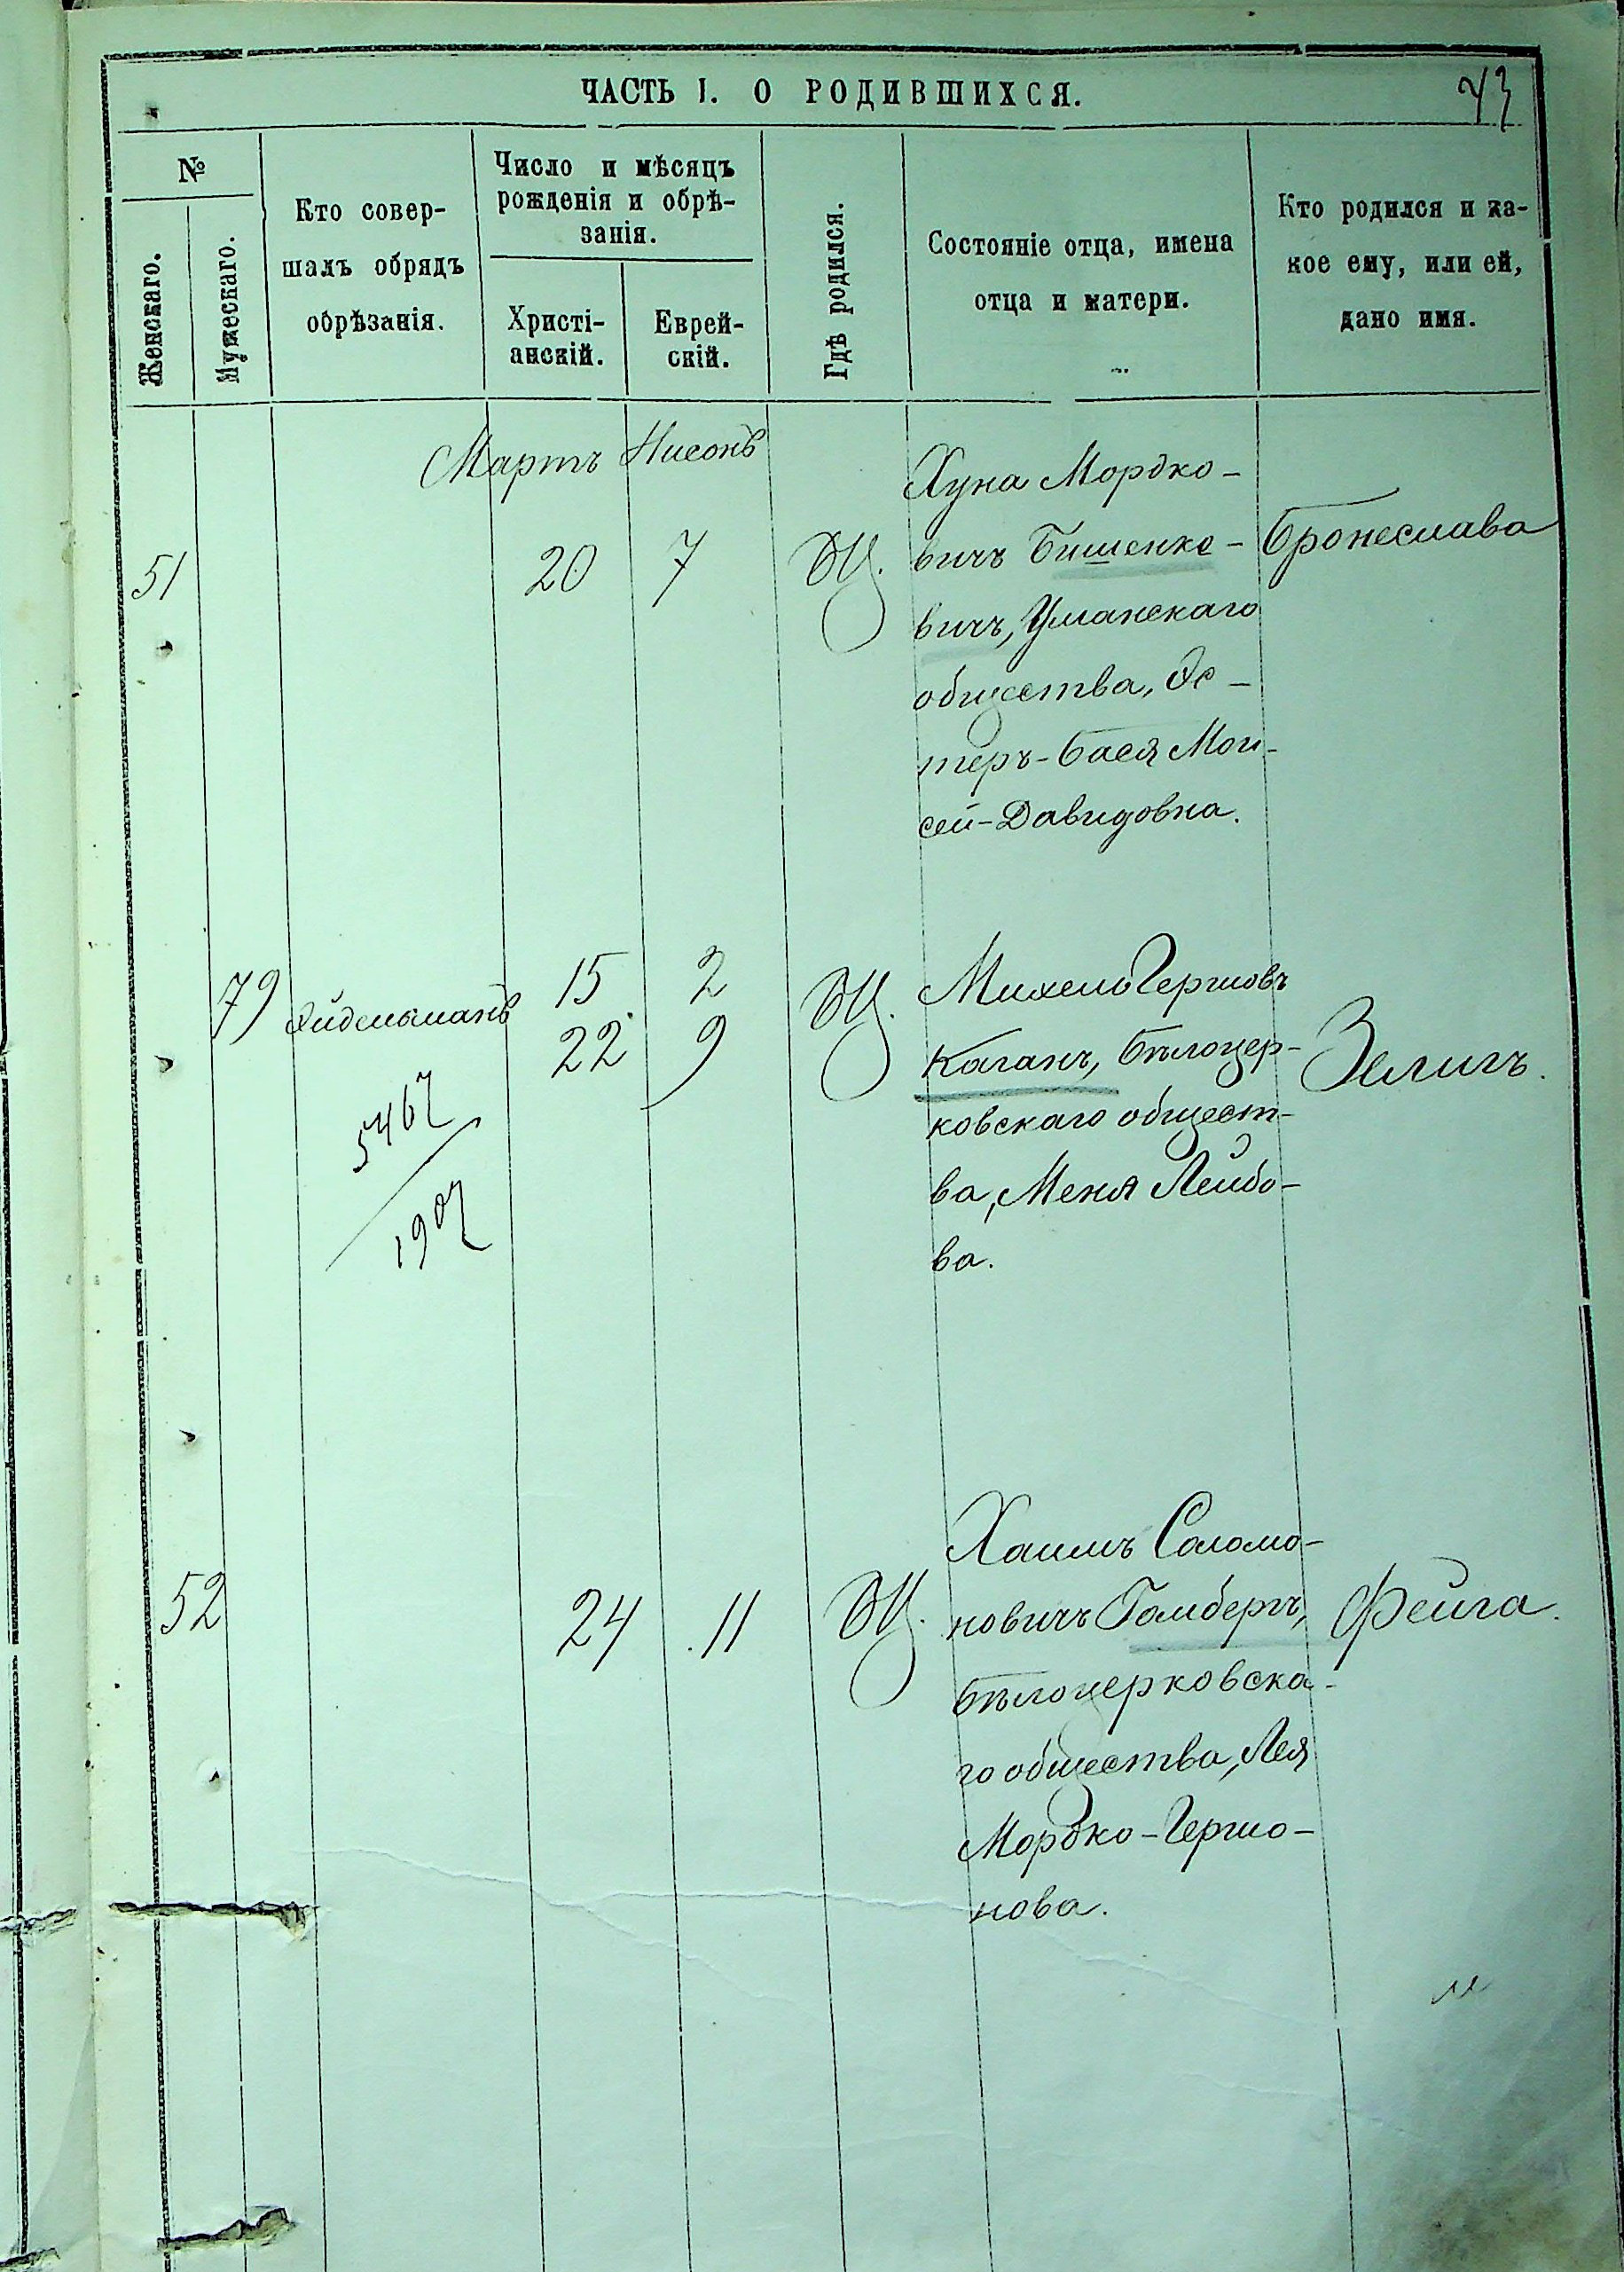 ЧАСТЬ I. О РОДИВШИХСЯ.
43
№
Женскаго.
Мужескаго.
Кто совер-
шалъ обрядъ
обрѣзанія.
Число и мѣсяцъ
рожденія и обрѣ-
занія.
Христі-
анскій.
Еврей-
скій.
Гдѣ родился.
Состояніе отца, имена
отца и матери.
Кто родился и ка-
кое ему, или ей,
дано имя.
Мартъ Нисонъ
51 20 7 БЦ.
Хуна Мордко-
вичъ Бишенке-
вичъ, Уманскаго
общества, Эс-
теръ-Бася Мои-
сей-Давидовна.
Бронеслава
79 Эйдельманъ
15 2
22 9
БЦ.
Михель Гершовъ
Каганъ, Бѣлоцер-
ковскаго общест-
ва, Меня Лейбо-
ва.
Зелигъ.
5467
1907
52 24 11 БЦ.
Хаимъ Соломо-
новичъ Гамбергъ,
Бѣлоцерковска-
го общества, Лея
Мордко-Гершо-
нова.
Фейга.